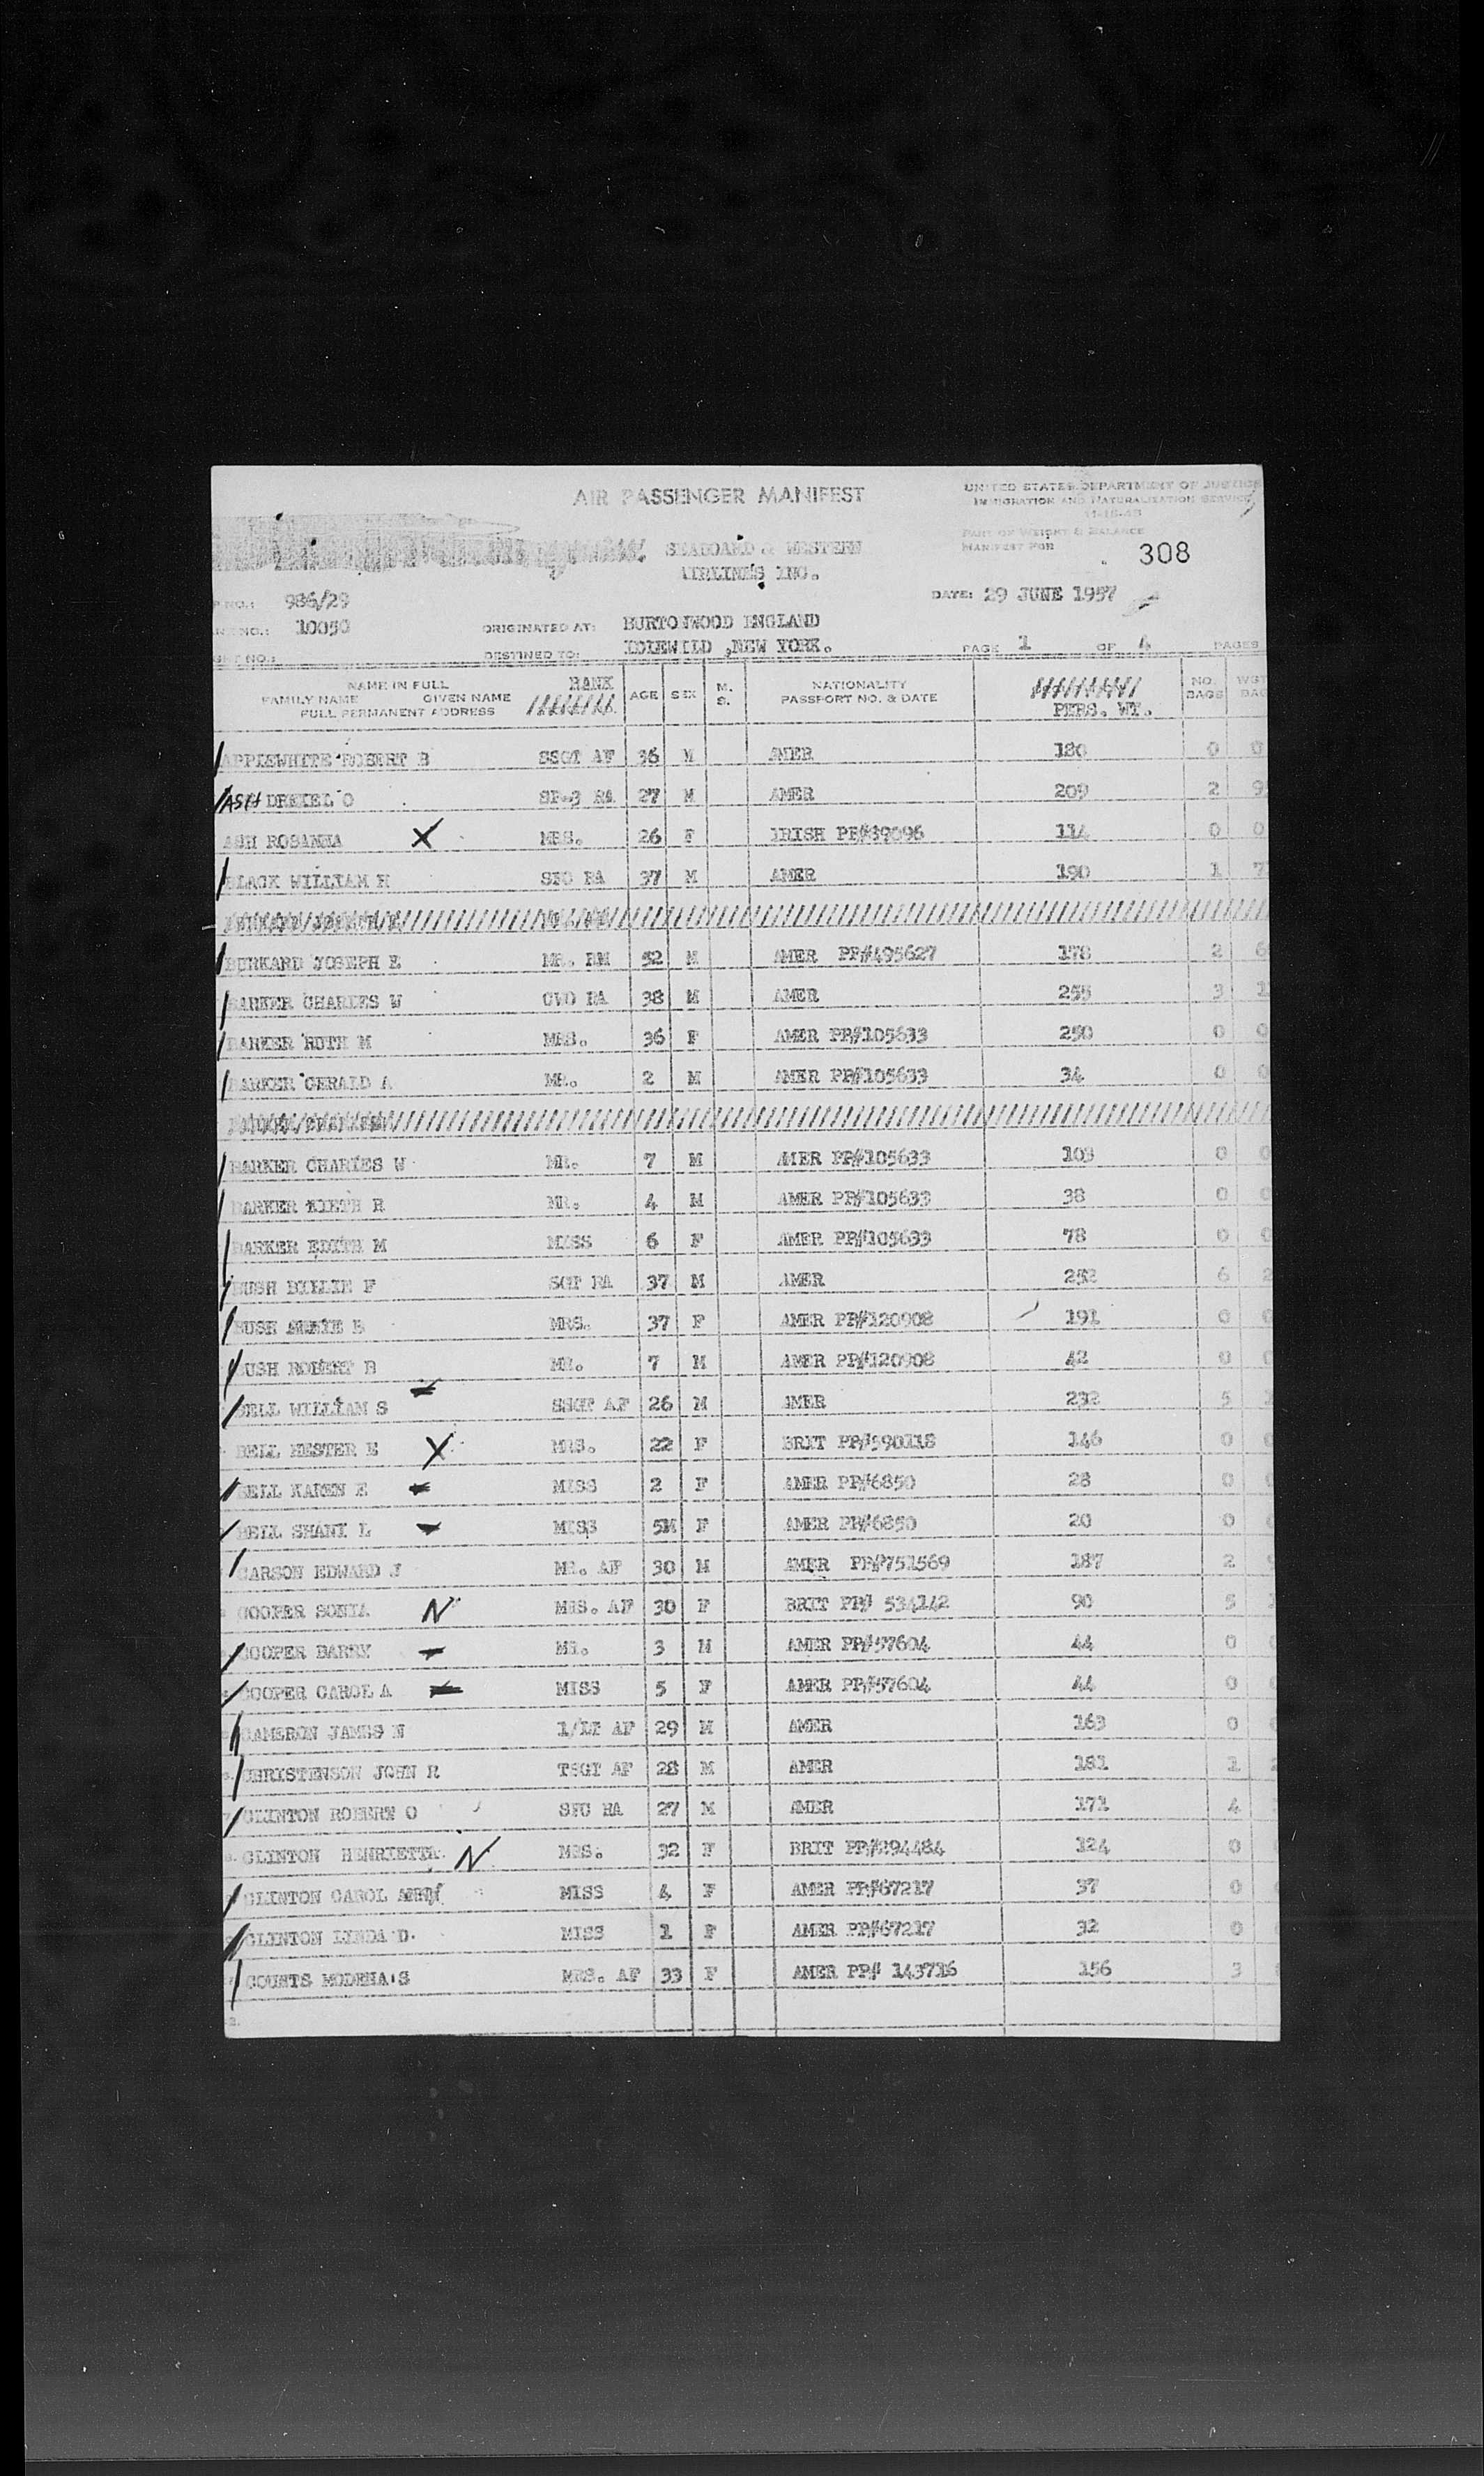 AIR PASSENGER MANIFEST
UNITED STATES DEPARTMENT OF JUSTICE
IMMIGRATION AND NATURALIZATION SERVICE
11-15-43
PART OF WEIGHT & BALANCE
MANIFEST FOR
308
SEABOARD & WESTERN
AIRLINES INC.
P NO.: 986/29
DATE: 29 JUNE 1957
NO.: 10050
ORIGINATED AT: BURTONWOOD ENGLAND
NO.:
DESTINED TO: IDLEWILD ,NEW YORK.
PAGE 1 OF 4 PAGES
NAME IN FULL
FAMILY NAME GIVEN NAME
FULL PERMANENT ADDRESS
RANK
AGE SEX M. S.
NATIONALITY
PASSPORT NO. & DATE
PERS. WT.
NO. BAGS WGT BAG
APPLEWHITE ROBERT B SSGT AF 36 M AMER 180 0 0
ASH DREXEL O SP-3 RA 27 M AMER 209 2 9
ASH ROSANNA X MRS. 26 F IRISH PP#39096 114 0 0
BLACK WILLIAM H SFC RA 37 M AMER 190 1 7
BURKARD JOSEPH E MR. RM 52 M AMER PP#495627 178 2 6
BARKER CHARLES W CWO RA 38 M AMER 255 3 1
BARKER RUTH M MRS. 36 F AMER PP#105633 250 0 0
BARKER GERALD A MR. 2 M AMER PP#105633 34 0 0
BARKER CHARLES W MR. 7 M AMER PP#105633 103 0 0
BARKER KIETH R MR. 4 M AMER PP#105633 38 0 0
BARKER EDITH M MISS 6 F AMER PP#105633 78 0 0
BUSH BILLIE F SGT RA 37 M AMER 252 6 2
BUSH B MRS. 37 F AMER PP#120908 191 0 0
BUSH ROBERT B MR. 7 M AMER PP#120908 42 0 0
BELL WILLIAM S SSGT AF 26 M AMER 232 5
BELL HESTER E X MRS. 22 F BRIT PP#590118 146 0 0
BELL KAREN E MISS 2 F AMER PP#6850 28 0 0
BELL SHANI L MISS 5M F AMER PP#6850 20 0
CARSON EDWARD J MR. AF 30 M AMER PP#751569 187 2
COOPER SONIA N MRS. AF 30 F BRIT PP# 534142 90 5
COOPER BARRY MR. 3 M AMER PP#57604 44 0
COOPER CAROL A MISS 5 F AMER PP#57604 44 0
CAMERON JAMES N 1/LT AF 29 M AMER 163 0
CHRISTENSON JOHN R TSGT AF 28 M AMER 181 1
CLINTON ROBERT O SFC RA 27 M AMER 171 4
CLINTON HENRIETTA N MRS. 32 F BRIT PP#294484 124 0
CLINTON CAROL ANN MISS 4 F AMER PP#67217 37 0
CLINTON LYNDA D. MISS 1 F AMER PP#67217 32 0
COUNTS MODENA S MRS. AF 33 F AMER PP# 143716 156 3